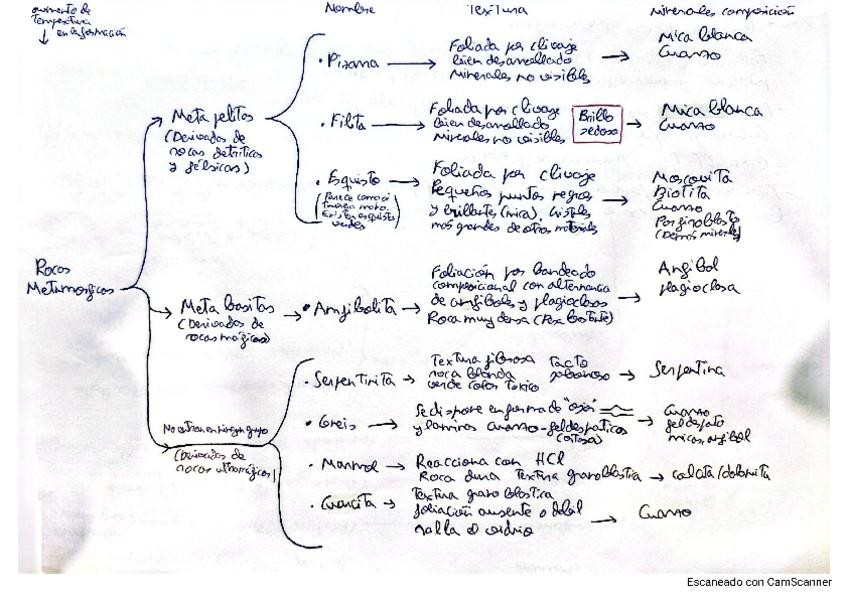 aumento de
Temperatura
↓ en la formación
Nombre
Textura
Minerales composición
Rocas
Metamorficas
Meta pelitas
(Derivados de
rocas detríticas
y félsicas)
• Pizarra →
Foliada por clivaje
bien desarrollado
Minerales no visibles
→ Mica blanca
Cuarzo
• Filita →
Foliada por clivaje
bien desarrollado
Minerales no visibles
Brillo
sedoso
→ Mica blanca
Cuarzo
• Esquisto →
(Parece como si
verdes
Foliada por clivaje
Pequeños puntos negros
y brillantes (mica). Cristales
más grandes de otros materiales
→ Moscovita
Biotita
Cuarzo
Porfiroblastos
(Demás minerales)
Meta basitas
(Derivados de
rocas máficas)
→ • Anfibolita →
Foliación por bandeado
composicional con alternancia
de anfiboles y plagioclasas
Roca muy densa (Pesa bastante)
→ Anfibol
plagioclasa
No entran en ningún grupo
(Derivados de
rocas ultramáficas)
• Serpentinita →
Textura fibrosa
roca blanda
verde color toxico
Tacto
jabonoso
→ Serpentina
• Gneis →
Se dispone en forma de "ojos"
y láminas cuarzo-feldespáticas
→ Cuarzo
feldespato
micas, anfibol
• Marmol →
Reacciona con HCl
Roca dura Textura granoblástica
→ calcita/dolomita
• Cuarcita →
Textura granoblastica
foliación ausente o débil
ralla el vidrio
→ Cuarzo
Escaneado con CamScanner